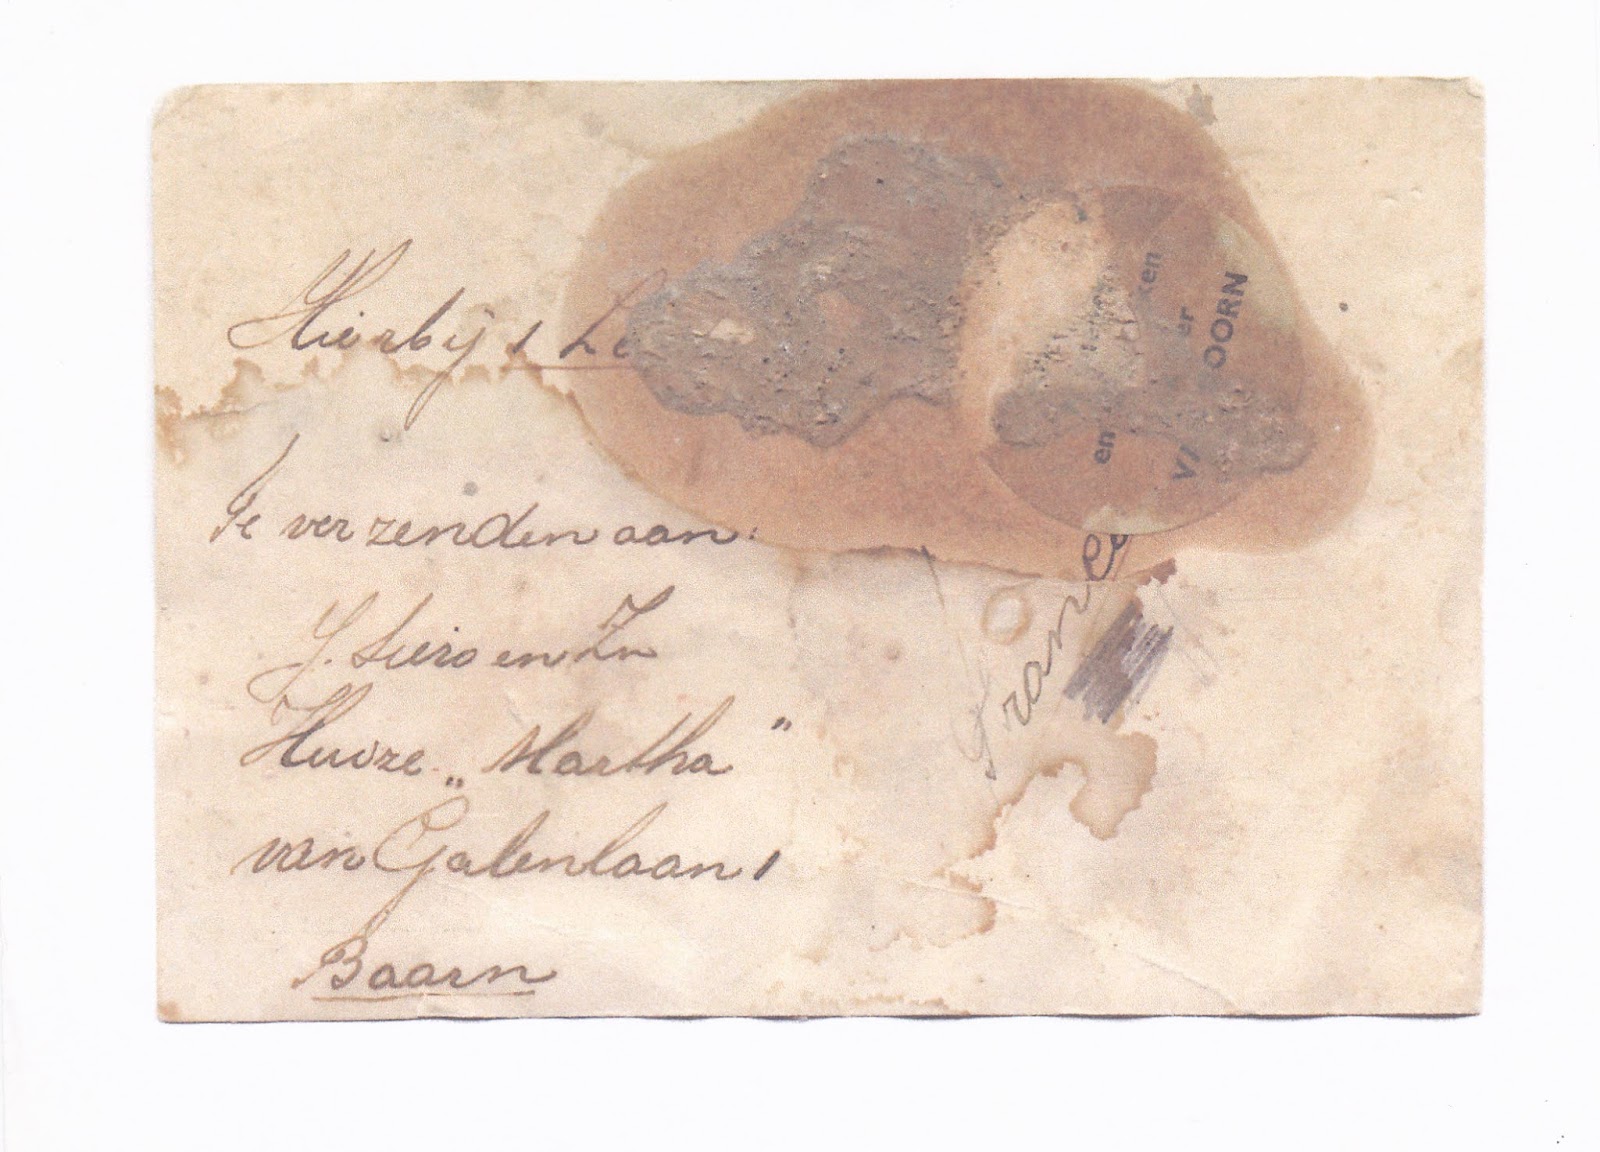 Hierbij 1
Te verzenden aan:
J. Siero en Zn
Huize „Martha"
van Galenlaan 1
Baarn
en
ken
er
OORN